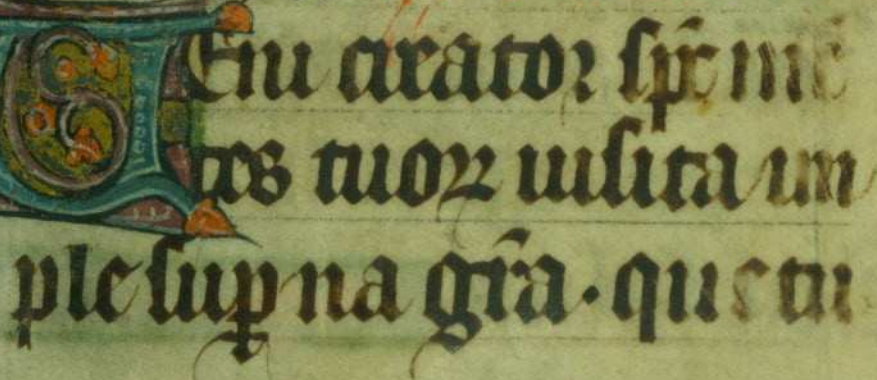 VEni creator sp̄c mē
tes tuoꝝ uisita im
ple suꝑna gr̄a · que tu